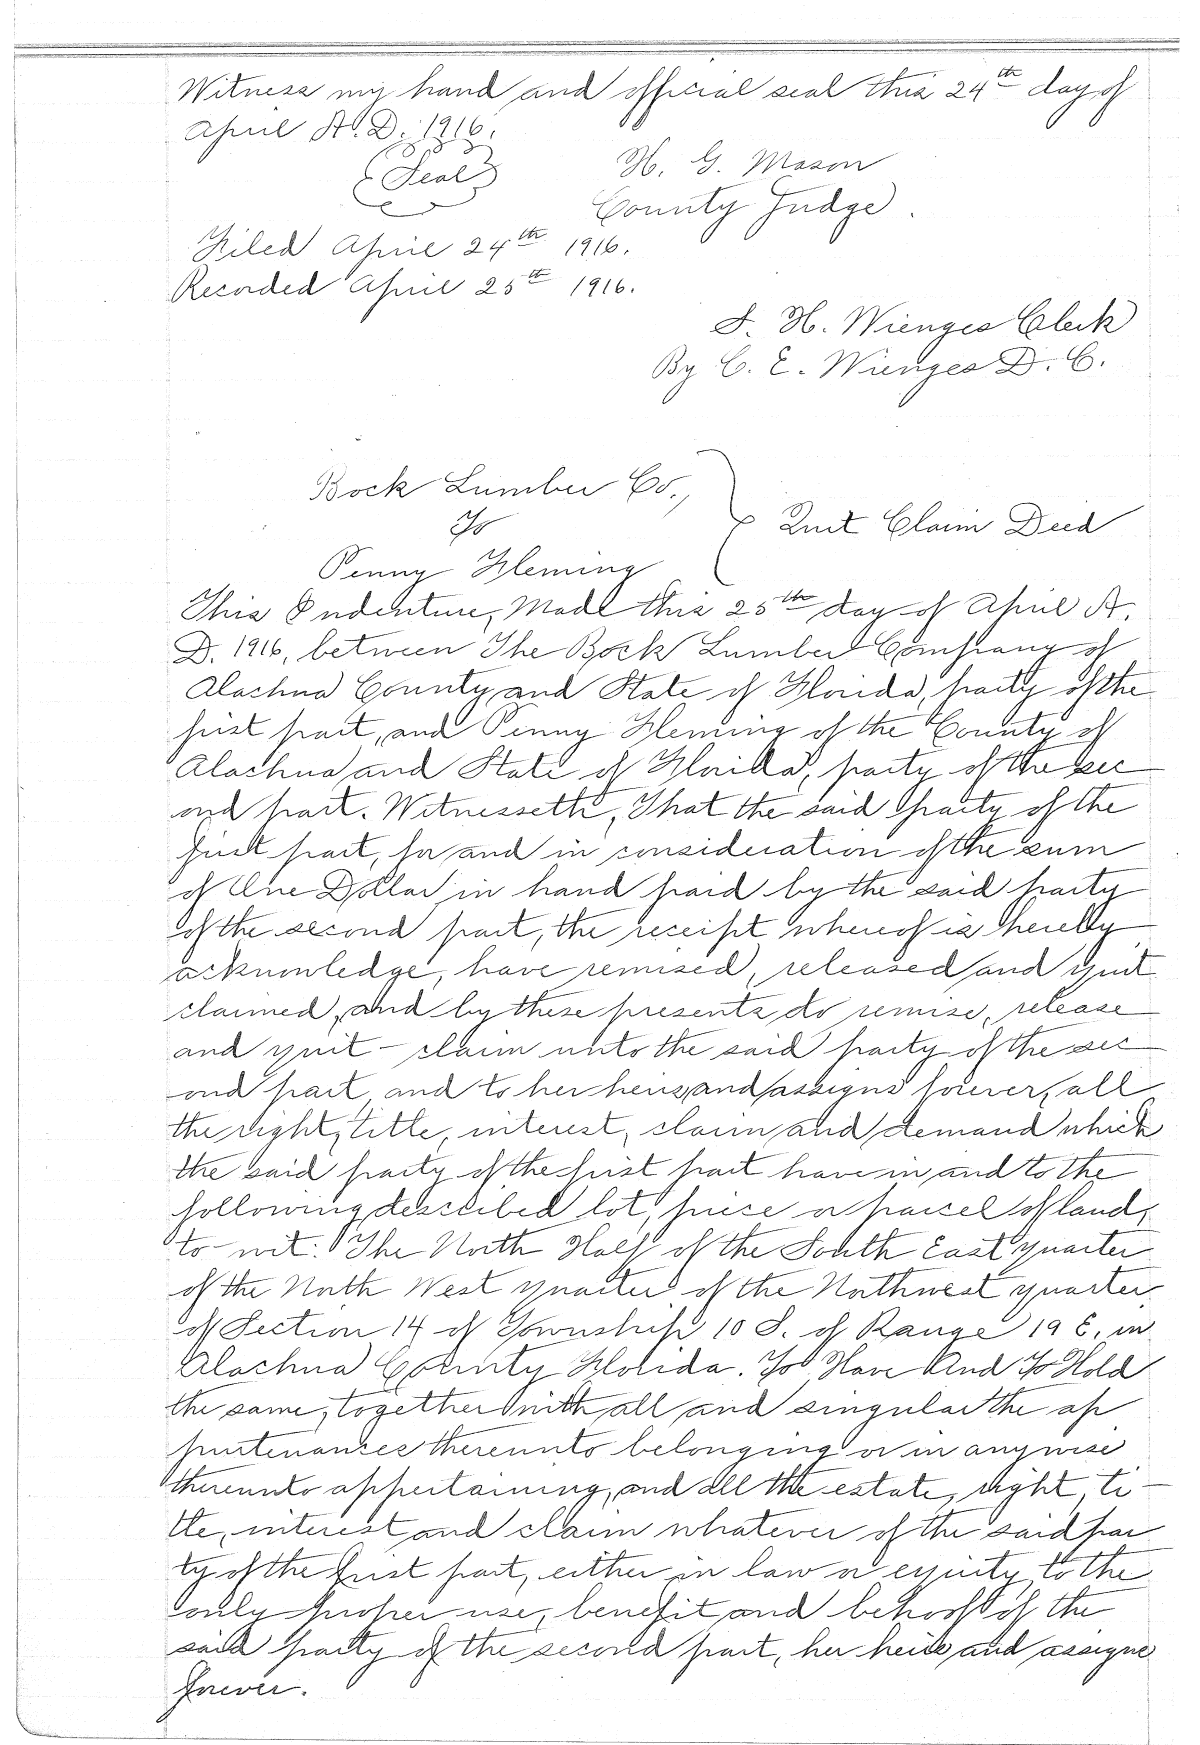 Witness my hand and official seal this 24th day of
April A. D. 1916.
(Seal) H. G. Mason
County Judge.
Filed April 24th 1916.
Recorded April 25th 1916.
S. H. Wienges Clerk
By C. E. Wienges D. C.
Bock Lumber Co.,
To
Quit Claim Deed
Penny Fleming
This Indenture, Made this 25th day of April A.
D. 1916, between The Bock Lumber Company of
Alachua County and State of Florida, party of the
first part, and Penny Fleming of the County of
Alachua and State of Florida, party of the sec
ond part. Witnesseth, That the said party of the
first part, for and in consideration of the sum
of One Dollar in hand paid by the said party
of the second part, the receipt whereof is hereby
acknowledge, have remised, released and quit
claimed, and by these presents do remise, release
and quit-claim unto the said party of the sec
ond part, and to her heirs, and assigns forever, all
the right, title, interest, claim and demand which
the said party of the first part have in and to the
following described lot, piece or parcel of land,
to-wit: The North Half of the South East quarter
of the North West quarter of the Northwest quarter
of Section 14 of Township 10 S. of Range 19 E. in
Alachua County Florida. To Have And To Hold
the same, together with all and singular the ap
purtenances thereunto belonging or in anywise
thereunto appertaining, and all the estate, right, ti-
tle, interest and claim whatever of the said par
ty of the first part, either in law or equity, to the
only proper use, benefit and behoof of the
said party of the second part, her heirs and assigns
forever.